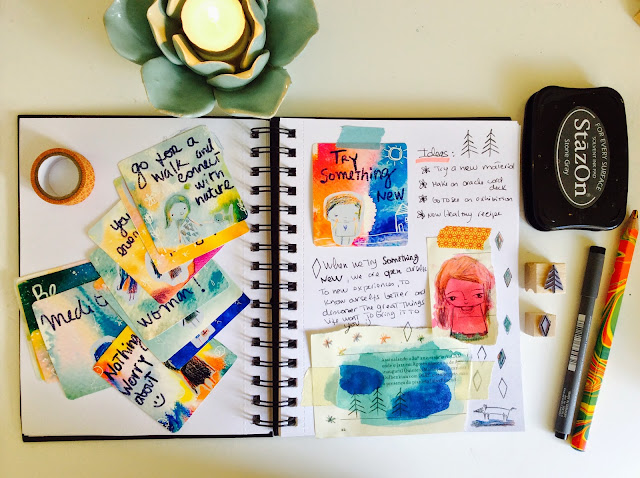 go for a
walk and
connect
with
nature
you
even
woman!
Be
Medit
Nothing
worry
about
Try
Something
New
Ideas:
Try a new material
Make an oracle card
deck
Go to see an exhibition
New healthy recipe
When we try Something
New, we are open
to new experiences, to
know ourselfs better and
discover the great things
life want to bring it to
you
FOR EVERY SURFACE
StazOn
SOLVENT INK PAD
Stone Gray